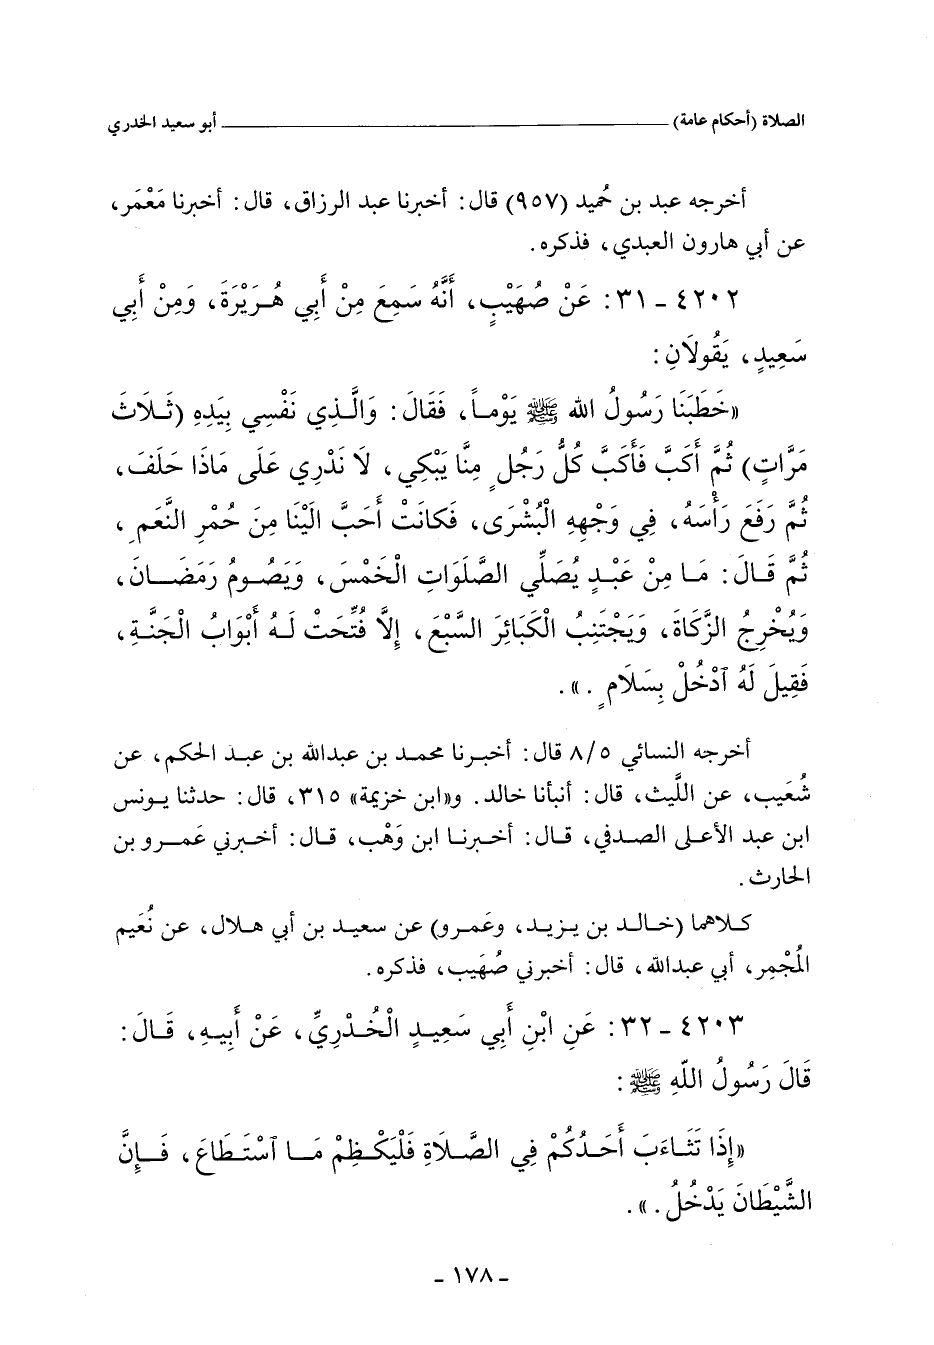 الصلاة (أحكام عامة) ــــــــــــــــــــ أبو سعيد الخدري
أخرجه عبد بن حُميد (٩٥٧) قال: أخبرنا عبد الرزاق، قال: أخبرنا مَعْمَر،
عن أبي هارون العبدي، فذكره.
٤٢٠٢ - ٣١: عَنْ صُهَيْبٍ، أَنَّهُ سَمِعَ مِنْ أَبِي هُرَيْرَةَ، وَمِنْ أَبِي
سَعِيدٍ، يَقُولَانِ:
«خَطَبَنَا رَسُولُ الله ﷺ يَوْماً، فَقَالَ: وَالَّذِي نَفْسِي بِيَدِهِ (ثَلَاثَ
مَرَّاتٍ) ثُمَّ أَكَبَّ فَأَكَبَّ كُلُّ رَجُلٍ مِنَّا يَبْكِي، لَا نَدْرِي عَلَى مَاذَا حَلَفَ،
ثُمَّ رَفَعَ رَأْسَهُ، فِي وَجْهِهِ الْبُشْرَى، فَكَانَتْ أَحَبَّ الَيْنَا مِنَ حُمْرِ النَّعَمِ،
ثُمَّ قَالَ: مَا مِنْ عَبْدٍ يُصَلِّي الصَّلَوَاتِ الْخَمْسَ، وَيَصُومُ رَمَضَانَ،
وَيُخْرِجُ الزَّكَاةَ، وَيَجْتَنِبُ الْكَبَائِرَ السَّبْعَ، إِلَّا فُتِّحَتْ لَهُ أَبْوَابُ الْجَنَّةِ،
فَقِيلَ لَهُ ٱدْخُلْ بِسَلَامٍ.».
أخرجه النسائي ٨/٥ قال: أخبرنا محمد بن عبدالله بن عبد الحكم، عن
شُعَيب، عن الليث، قال: أنبأنا خالد. و«ابن خزيمة» ٣١٥، قال: حدثنا يونس
ابن عبد الأعلى الصدفي، قال: أخبرنا ابن وَهْب، قال: أخبرني عَمرو بن
الحارث.
كلاهما (خالد بن يزيد، وعَمرو) عن سعيد بن أبي هلال، عن نُعَيم
المُجْمِر، أبي عبدالله، قال: أخبرني صُهَيب، فذكره.
٤٢٠٣ - ٣٢: عَنِ ابْنِ أَبِي سَعِيدٍ الْخُدْرِيِّ، عَنْ أَبِيهِ، قَالَ:
قَالَ رَسُولُ اللَّهِ ﷺ:
«إِذَا تَثَاءَبَ أَحَدُكُمْ فِي الصَّلَاةِ فَلْيَكْظِمْ مَا ٱسْتَطَاعَ، فَإِنَّ
الشَّيْطَانَ يَدْخُلُ.».
- ١٧٨ -